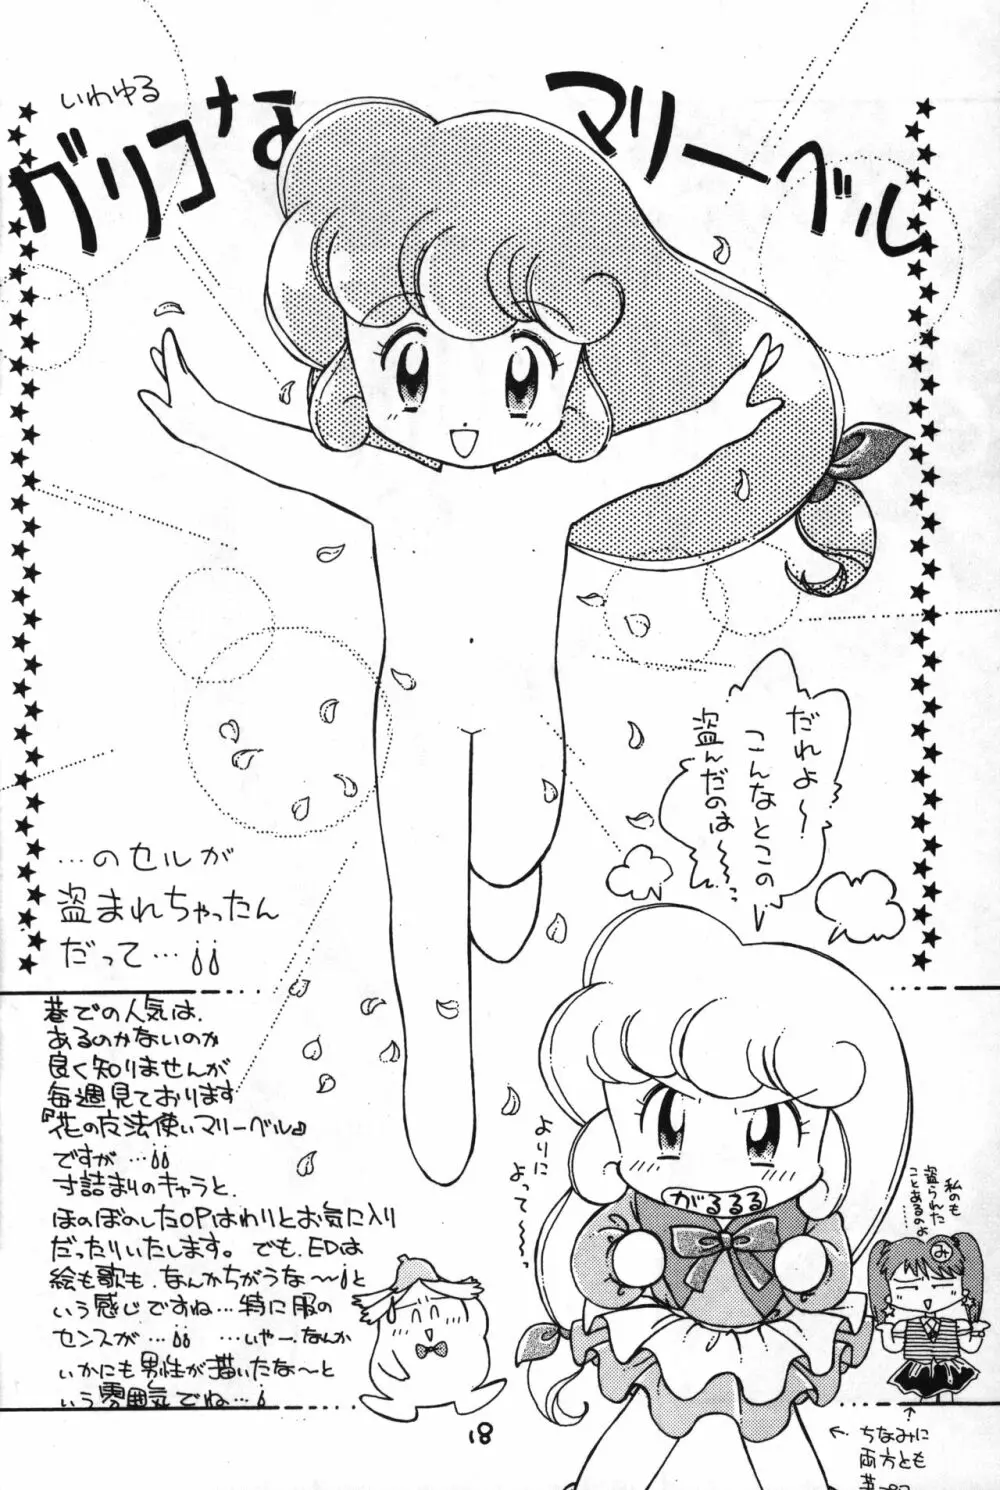 いわゆる
グリコな
マリーベル
だれよ～！
こんなとこの
盗んだのは～～…
…のセルが
盗まれちゃったん
だって…
巷での人気は、
あるのかないのか
良く知りませんが
毎週見ております
『花の女法使いマリーベル』
ですが…
寸詰まりのキャラと、
ほのぼのしたOPはわりとお気に入り
だったりいたします。でも、EDは
絵も歌も、なんかちがうな～と
いう感じですね…特に服の
センスが… …いやー、なんか
いかにも男性が描いたな～と
いう雰囲気でね…
よりに
よって～～。
がるるる
私のも
盗られた
ことあるのよ
み
18
← ちなみに
両方とも